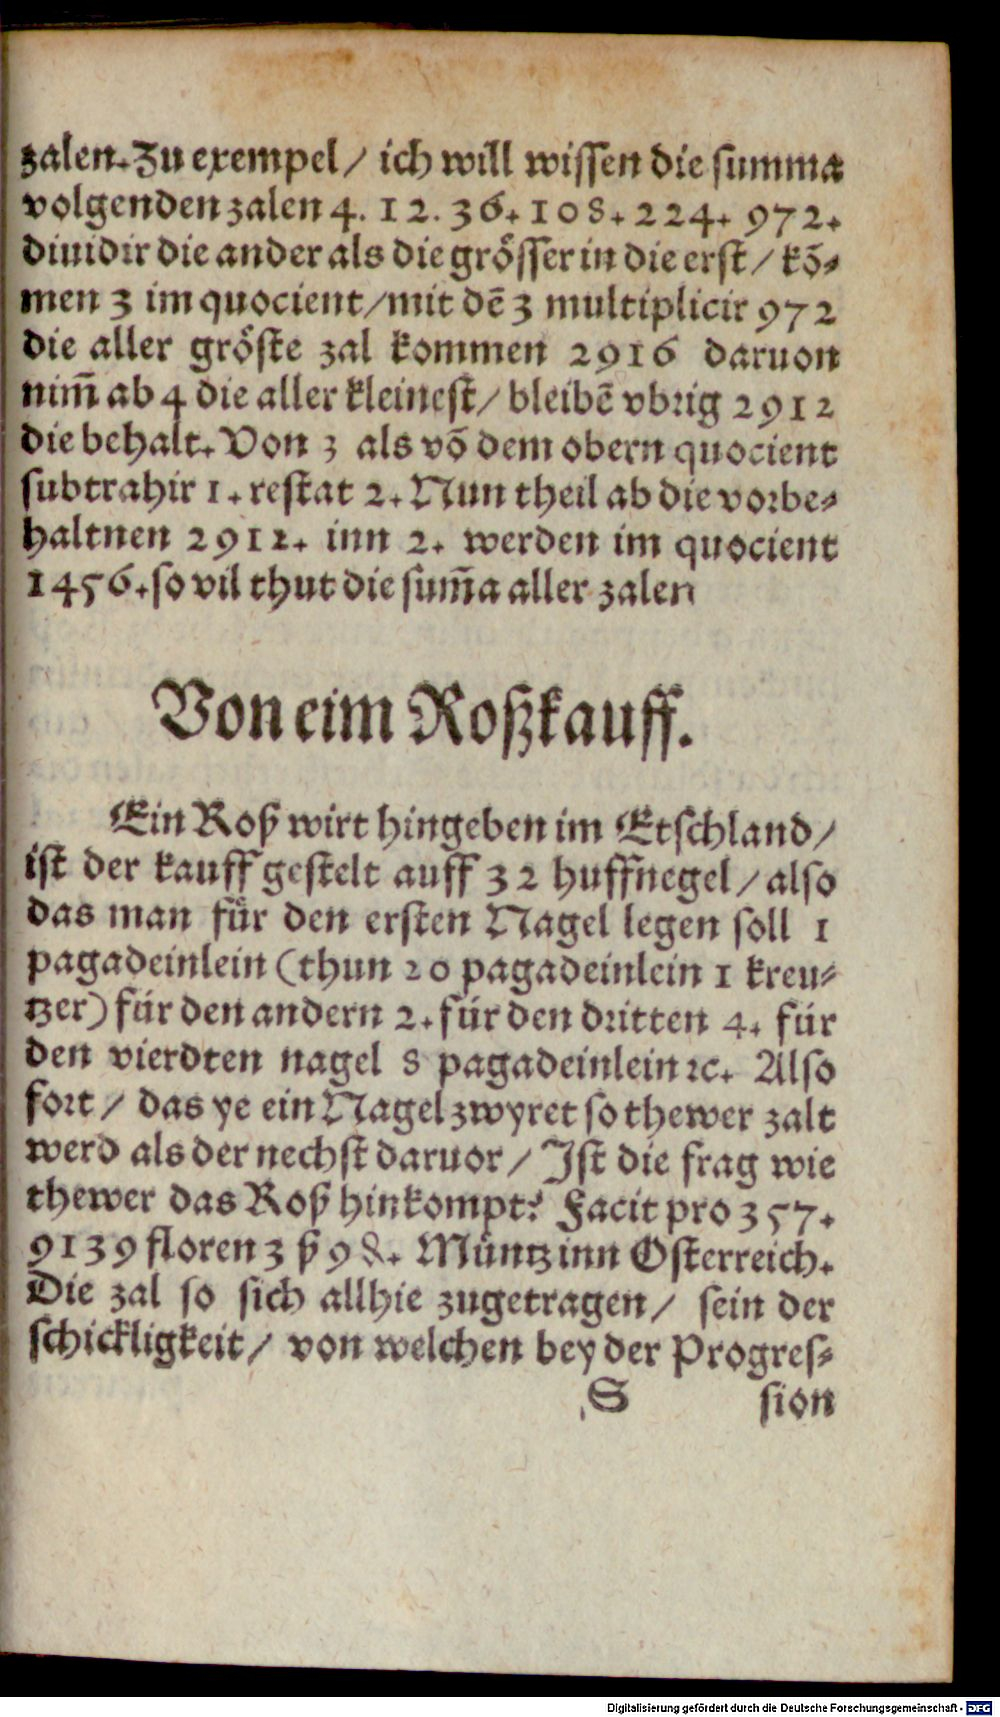 zalen. Zu exempel / ich will wissen die summa
volgenden zalen 4. 12. 36. 108. 224. 972.
diuidir die ander als die grösser in die erst / kō-
men 3 im quocient / mit dē 3 multiplicir 972
die aller gröste zal kommen 2916 daruon
nim̄ ab 4 die aller kleinest / bleibē vbrig 2912
die behalt. Von 3 als vō dem obern quocient
subtrahir 1. restat 2. Nun theil ab die vorbe-
haltnen 2912. inn 2. werden im quocient
1456. so vil thut die sum̄a aller zalen
Von eim Roßkauff.
Ein Roß wirt hingeben im Etschland /
ist der kauff gestelt auff 32 huffnegel / also
das man für den ersten Nagel legen soll 1
pagadeinlein (thun 20 pagadeinlein 1 kreu-
tzer) für den andern 2. für den dritten 4. für
den vierdten nagel 8 pagadeinlein ꝛc. Also
fort / das ye ein Nagel zwyret so thewer zalt
werd als der nechst daruor / Ist die frag wie
thewer das Roß hinkompt? Facit pro 357.
9139 floren 3 ß 9 ₰. Müntz inn Osterreich.
Die zal so sich allhie zugetragen / sein der
schickligkeit / von welchen bey der Progres-
S sion
Digitalisierung gefördert durch die Deutsche Forschungsgemeinschaft - DFG